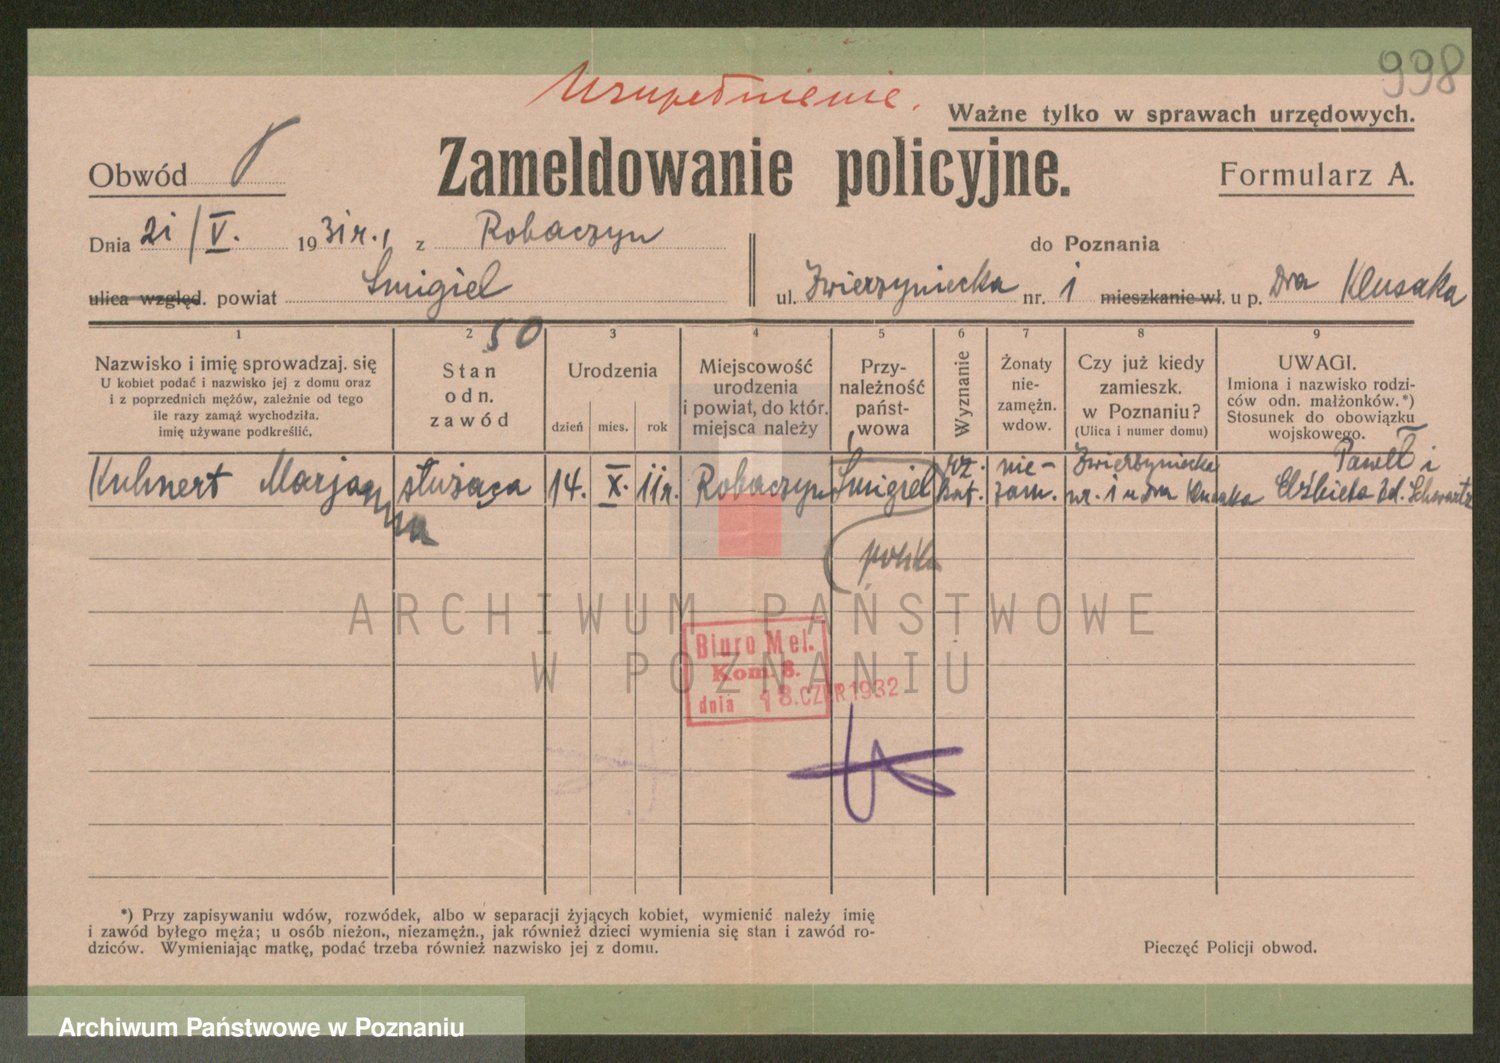 998
Uzupełnienie.
Ważne tylko w sprawach urzędowych.
Zameldowanie policyjne.
Obwód
Formularz A.
Dnia 21/V. 1931 r., z Robaczyn
do Poznania
ulica względ. powiat Śmigiel
ul. Zwierzyniecka nr. 1 mieszkanie wł. u p. Dra Klusaka
1 2 3 4 5 6 7 8 9
50
Nazwisko i imię sprowadzaj. się
U kobiet podać i nazwisko jej z domu oraz
i z poprzednich mężów, zależnie od tego
ile razy zamąż wychodziła.
imię używane podkreślić.
Stan
odn.
zawód
Urodzenia
dzień mies. rok
Miejscowość
urodzenia
i powiat, do któr.
miejsca należy
Przy-
należność
państ-
wowa
Wyznanie
Żonaty
nie-
zamężn.
wdow.
Czy już kiedy
zamieszk.
w Poznaniu?
(Ulica i numer domu)
UWAGI.
Imiona i nazwisko rodzi-
ców odn. małżonków.*)
Stosunek do obowiązku
wojskowego.
Kuhnert Marjanna
służąca
14. X. 11 r.
Robaczyn
Śmigiel
polska
rz.
kat.
nie-
zam.
Zwierzyniecka
nr. 1 u Dra Klusaka
Paweł i
Elżbieta zd. Schwartz
ARCHIWUM PAŃSTWOWE
W POZNANIU
Biuro Mel.
Kom. 8.
dnia 18. CZER 1932
*) Przy zapisywaniu wdów, rozwódek, albo w separacji żyjących kobiet, wymienić należy imię
i zawód byłego męża; u osób nieżon., niezamężn., jak również dzieci wymienia się stan i zawód ro-
dziców. Wymieniając matkę, podać trzeba również nazwisko jej z domu.
Pieczęć Policji obwod.
Archiwum Państwowe w Poznaniu